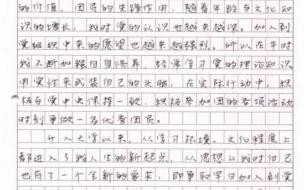 的价值。团员的先锋作用,随着年龄与文化知
识的增长,我对党的认识也越来越深。加入到
党组织中来的愿望也越来越强烈。所以在平时
我不断加强自自修养,经常学习党的理论知识
用党性来武装自己的头脑,在实际行动中,积
极与党中央保持一致,积极参加团的各项活动
时刻争做一名优秀团员。
升入大学以来,从学习环境、文化程度上
都进入了我人生的新起点,从思想上我对自己
也有了一个全新的要求,即争取早日加入到党